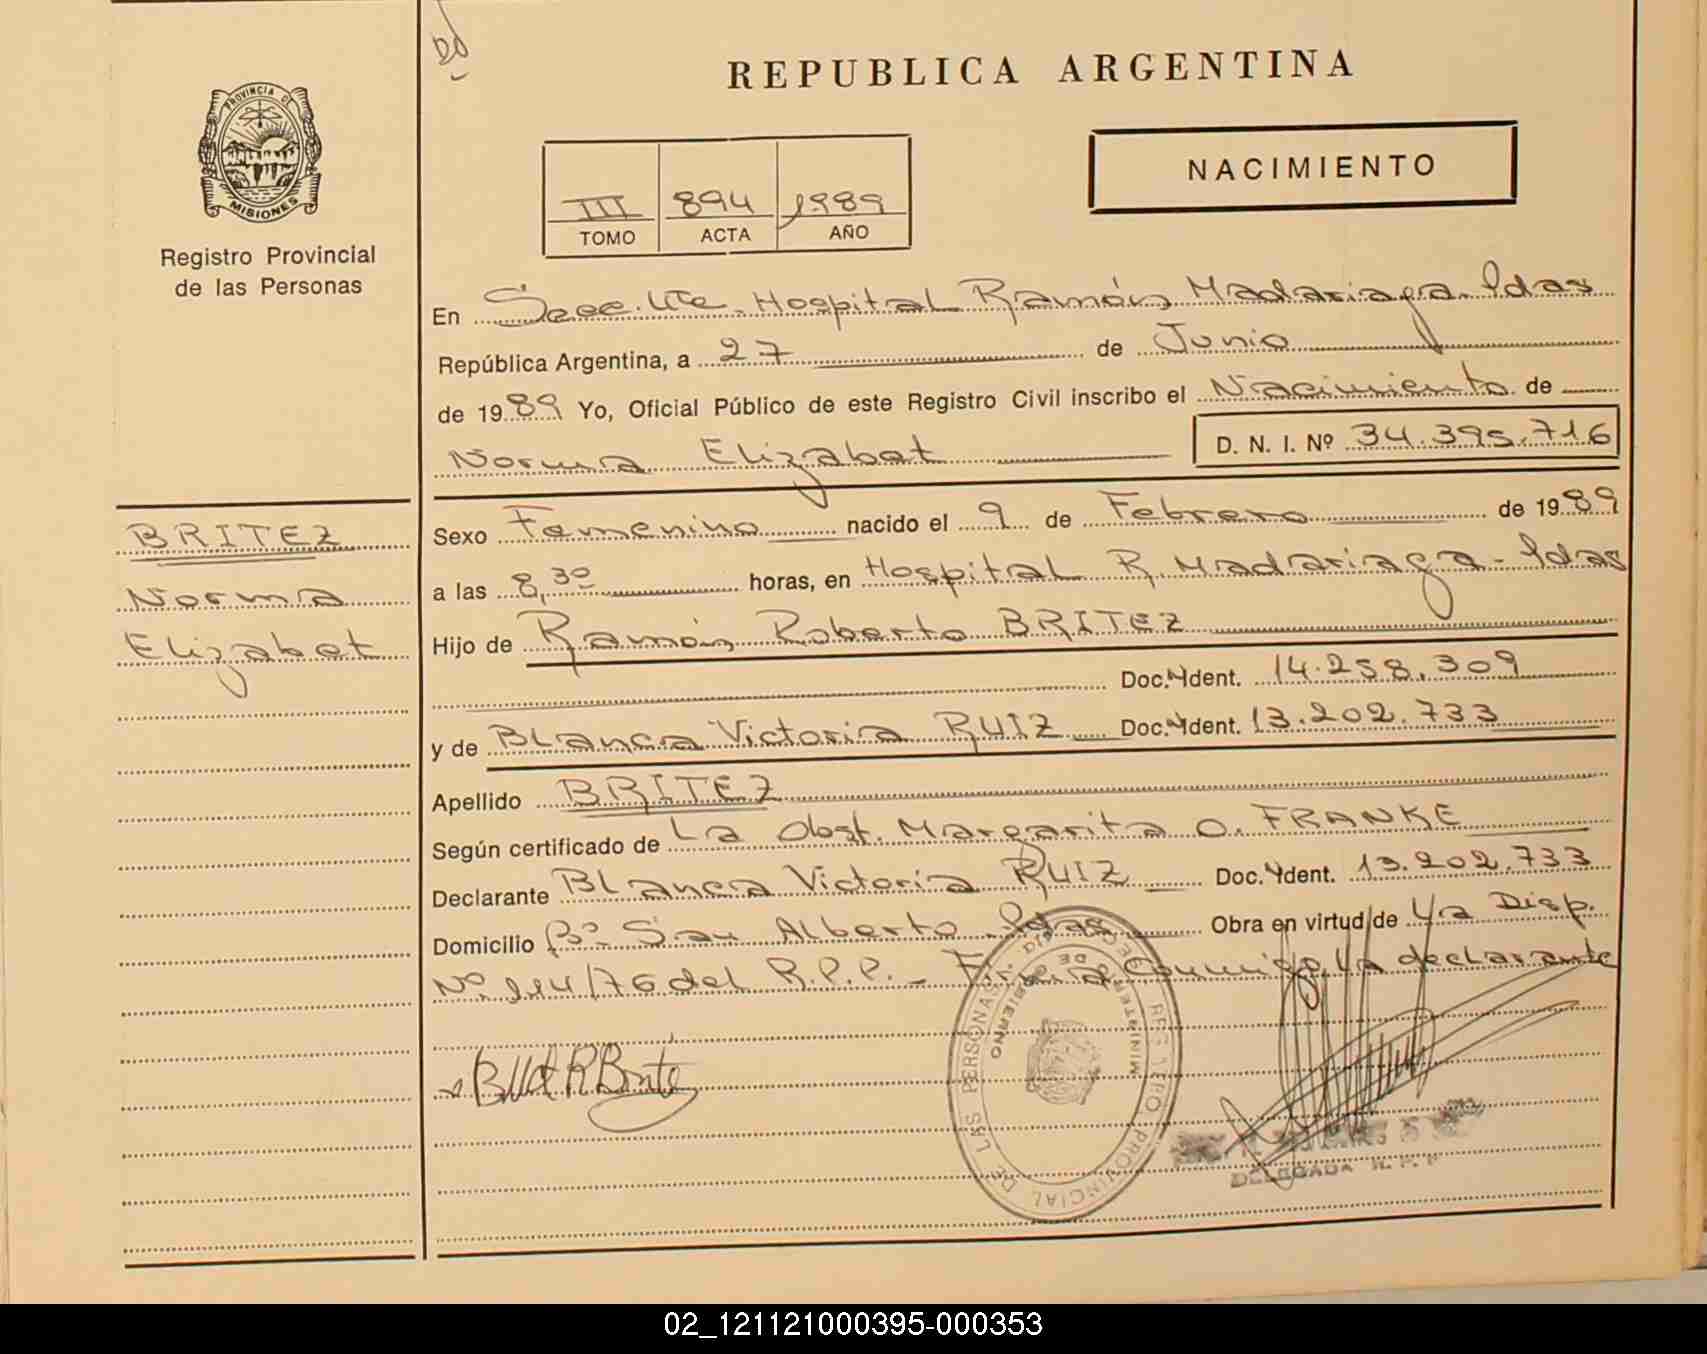 REPUBLICA ARGENTINA
PROVINCIA DE
MISIONES
Registro Provincial
de las Personas
III 894 1989
TOMO ACTA AÑO
NACIMIENTO
En Secc. Hospital Ramón Madariaga. Pdas
República Argentina, a 27 de Junio
de 1989 Yo, Oficial Público de este Registro Civil inscribo el Nacimiento de
Norma Elizabet D. N. I. Nº 34.395.716
BRITEZ
Norma
Elizabet
Sexo Femenino nacido el 9 de Febrero de 1989
a las 8,30 horas, en Hospital R. Madariaga - Pdas
Hijo de Ramón Roberto BRITEZ
Doc. Ident. 14.258.309
y de Blanca Victoria RUIZ Doc. Ident. 13.202.733
Apellido BRITEZ
Según certificado de La Obst. Margarita O. FRANKE
Declarante Blanca Victoria RUIZ Doc. Ident. 13.202.733
Domicilio Bº San Alberto Pdas Obra en virtud de La Disp.
Nº 114/76 del R.P.P. - Firma Conmigo La declarante
REGISTRO PROVINCIAL DE LAS PERSONAS
MINISTERIO DE GOBIERNO
DELEGADA R. P. P
02_121121000395-000353